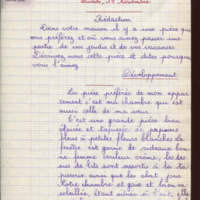 Mardi, 17 Novembre
Rédaction
Dans votre maison il y a une pièce que
vous préférez et où vous aimez passer une
partie de vos jeudis et de vos vacances
Décrivez cette pièce et dites pourquoi
vous l'aimez.
Développement
La pièce préférée de mon appar-
tement c'est ma chambre qui est
aussi celle de ma sœur.
C'est une grande pièce bien
et tapissée de papiers
bleus à petites fleurs blanches la
fenêtre est garnie de rideaux bon-
ne femme couleur crème. les des-
sus de lits sont assortis à la pa-
pisserie ainsi que les abat-jour
Notre chambre est gaie et bien en-
soleillée, étant située à l'est, elle